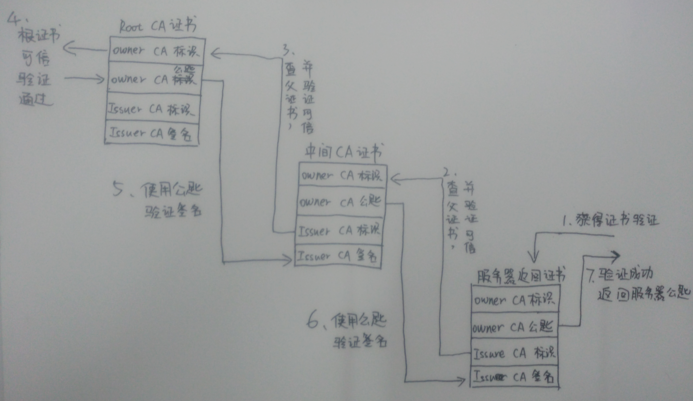 4.
根证书
可信
验证
通过
Root CA 证书
owner CA 标识
owner CA 公匙
Issuer CA 标识
Issuer CA 签名
3.
查父证书,
并验证可信
5、使用公匙
验证签名
中间CA证书
owner CA 标识
owner CA 公匙
Issuer CA 标识
Issuer CA 签名
2.
查父证书,
并验证可信
6、使用公匙
验证签名
1.获得证书验证
服务器返回证书
owner CA 标识
owner CA 公匙
Issure CA 标识
Issuer CA 签名
7.验证成功
返回服务器公匙